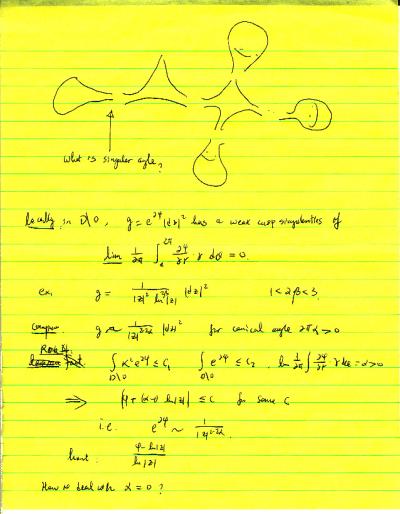 what is singular angle?
locally in D\0, g = e^{2φ} |dz|² has a weak cusp singularities if
lim 1/2π ∫_0^{2π} ∂φ/∂r r dθ = 0.
ex, g = 1/(|z|² ln^{2β}|z|) |dz|² 1 < 2β < 3.
compare g ~ 1/|z|^{2-2α} |dz|² for conical angle 2πα > 0
fact. ∫_{D\0} K² e^{2φ} ≤ C₁ ∫_{D\0} e^{2φ} ≤ C₂,
⇒ |φ + (α-1) ln|z|| ≤ C for some C
i.e. e^{2φ} ~ 1/|z|^{2-2α}.
φ - ln|z|
ln|z|
How to deal with α = 0?